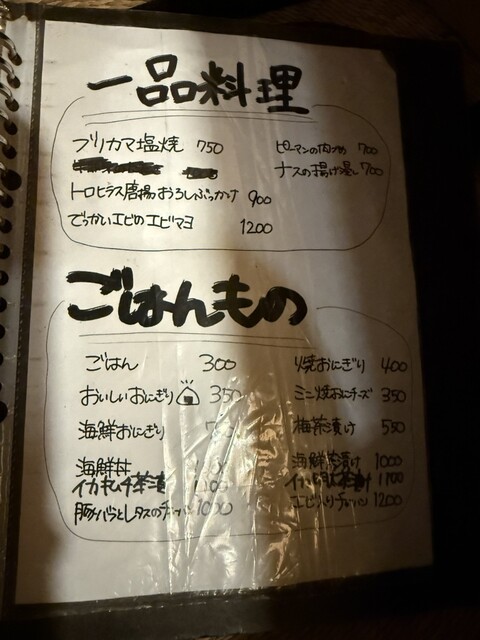 一品料理
ブリカマ塩焼 750
ピーマンの肉づめ 700
ナスの揚げ浸し 700
トロヒラス唐揚おろしぶっかけ 900
でっかいエビのエビマヨ 1200
ごはんもの
ごはん 300
焼おにぎり 400
おいしいおにぎり 350
ミニ焼おにチーズ 350
海鮮おにぎり
梅茶漬け 550
海鮮丼
海鮮茶漬け 1000
イカキムチ茶漬
1100
豚バラとレタスのチャーハン 1000
エビ入りチャーハン 1200